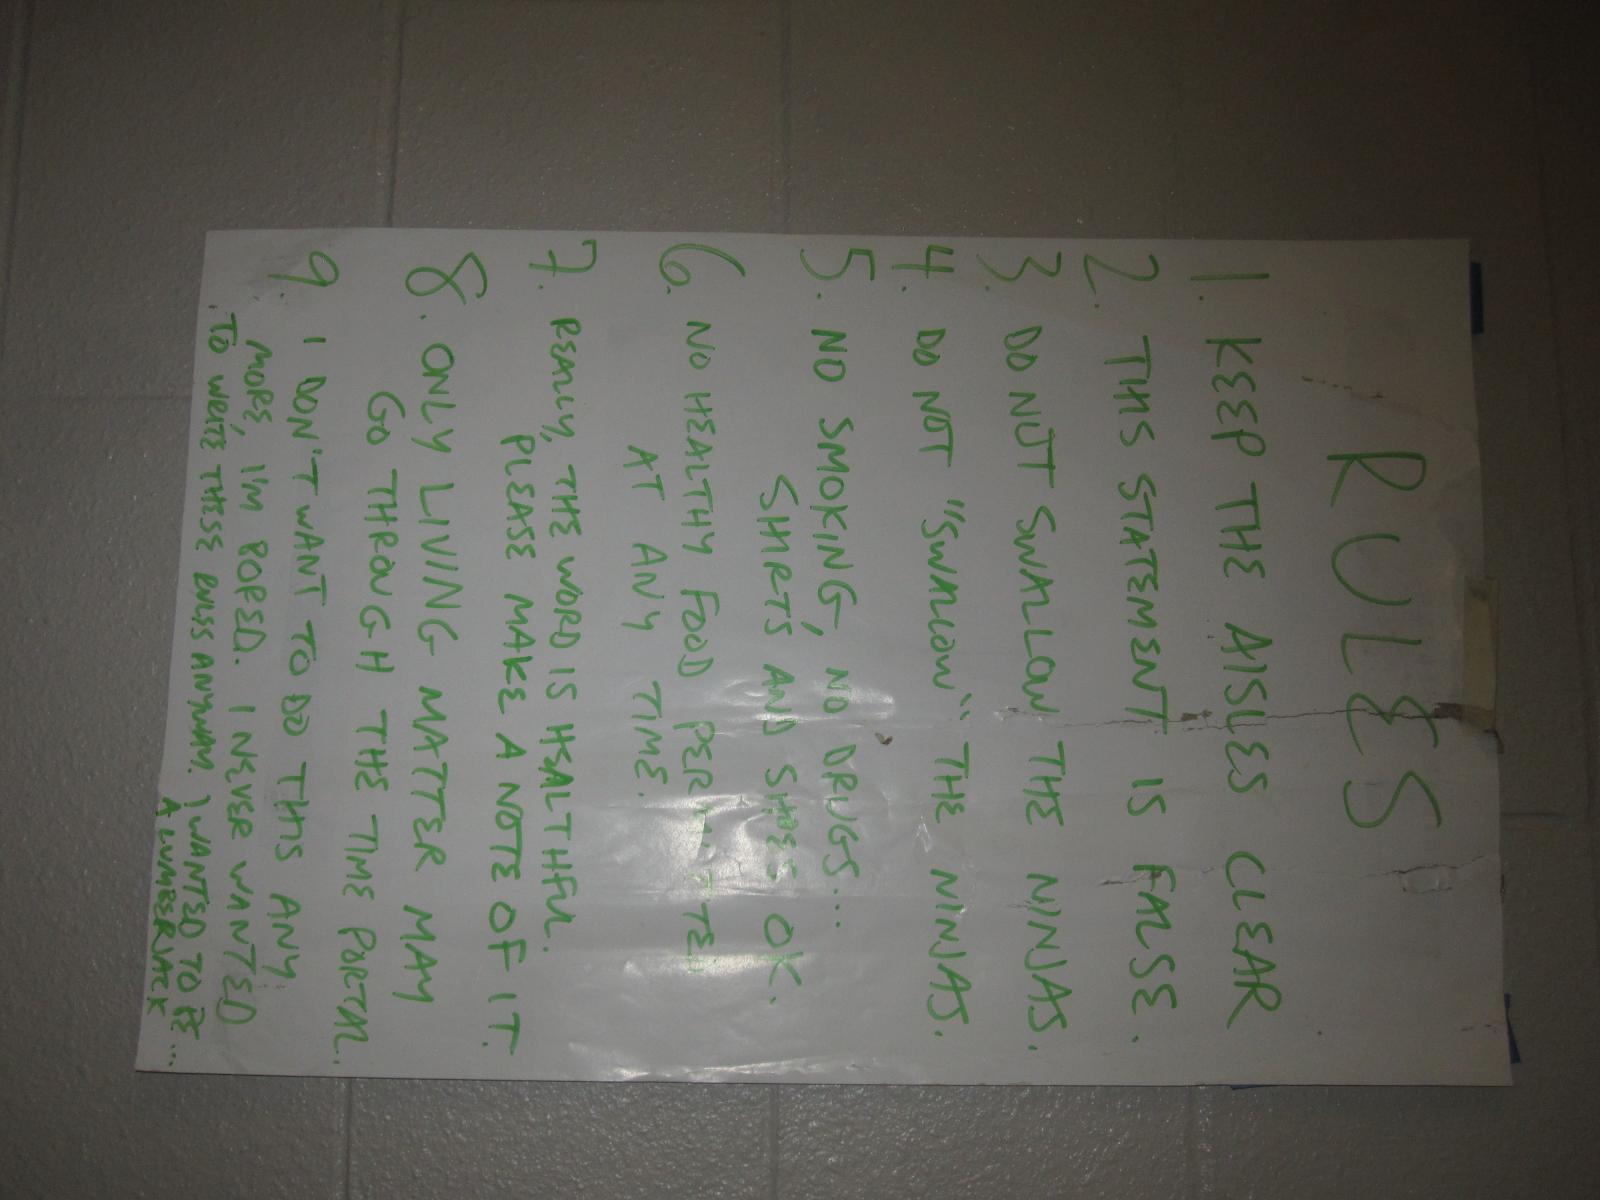 RULES
1. KEEP THE AISLES CLEAR
2. THIS STATEMENT IS FALSE.
3. DO NOT SWALLOW THE NINJAS.
4. DO NOT "SWALLOW" THE NINJAS.
5. NO SMOKING, NO DRUGS...
SHIRTS AND SHOES OK.
6. NO HEALTHY FOOD PERMITTED
AT ANY TIME.
7. REALLY, THE WORD IS HEALTHFUL.
PLEASE MAKE A NOTE OF IT.
8. ONLY LIVING MATTER MAY
GO THROUGH THE TIME PORTAL.
9. I DON'T WANT TO DO THIS ANY
MORE, I'M BORED. I NEVER WANTED
TO WRITE THESE RULES ANYWAY. I WANTED TO BE...
A LUMBERJACK